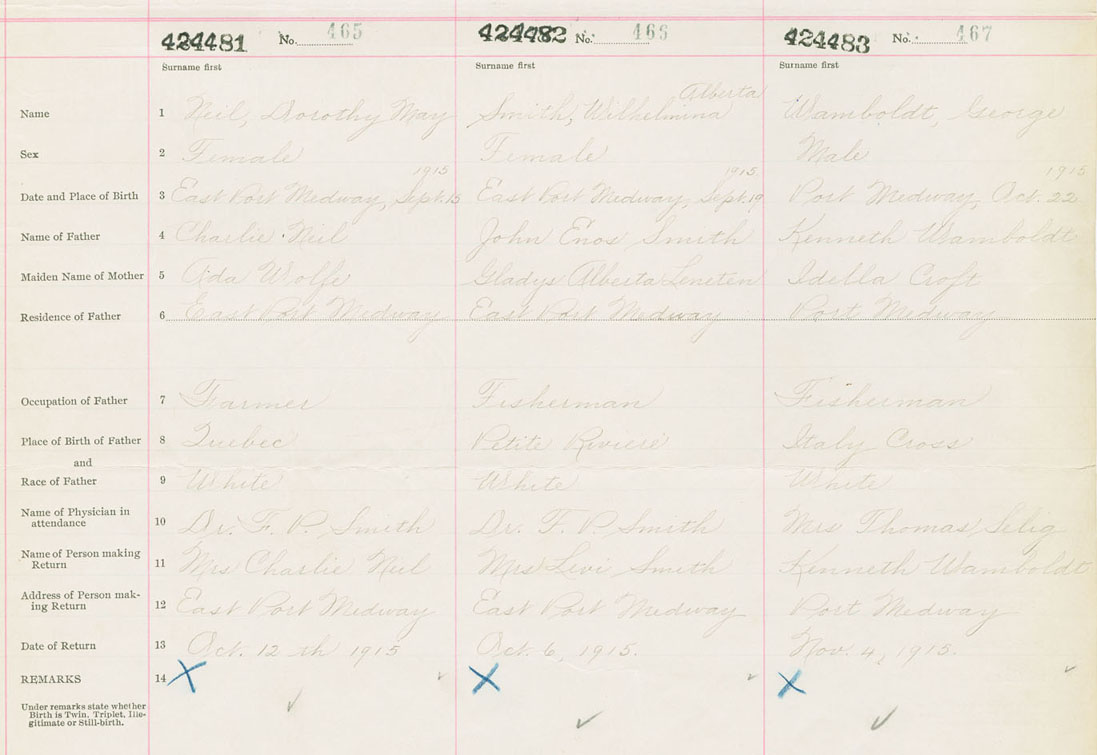 424481 No. 465 424482 No. 466 424483 No. 467
Surname first Surname first Surname first
Alberta
Name 1 Neil, Dorothy May Smith, Wilhelmina Wamboldt, George
Sex 2 Female Female Male
1915 1915 1915
Date and Place of Birth 3 East Port Medway, Sept. 15 East Port Medway, Sept. 19 Port Medway, Oct. 22
Name of Father 4 Charlie Neil John Enos Smith Kenneth Wamboldt
Maiden Name of Mother 5 Ada Wolfe Gladys Alberta Idella Croft
Residence of Father 6 East Port Medway East Port Medway Port Medway
Occupation of Father 7 Farmer Fisherman Fisherman
Place of Birth of Father 8 Quebec Petite Riviere Italy Cross
and
Race of Father 9 White White White
Name of Physician in
attendance 10 Dr. F. P. Smith Dr. F. P. Smith Mrs Thomas Selig
Name of Person making
Return 11 Mrs Charlie Neil Mrs Levi Smith Kenneth Wamboldt
Address of Person mak-
ing Return 12 East Port Medway East Port Medway Port Medway
Date of Return 13 Oct. 12 th 1915 Oct. 6, 1915. Nov. 4, 1915.
REMARKS 14 X X X
Under remarks state whether
Birth is Twin, Triplet, Ille-
gitimate or Still-birth.